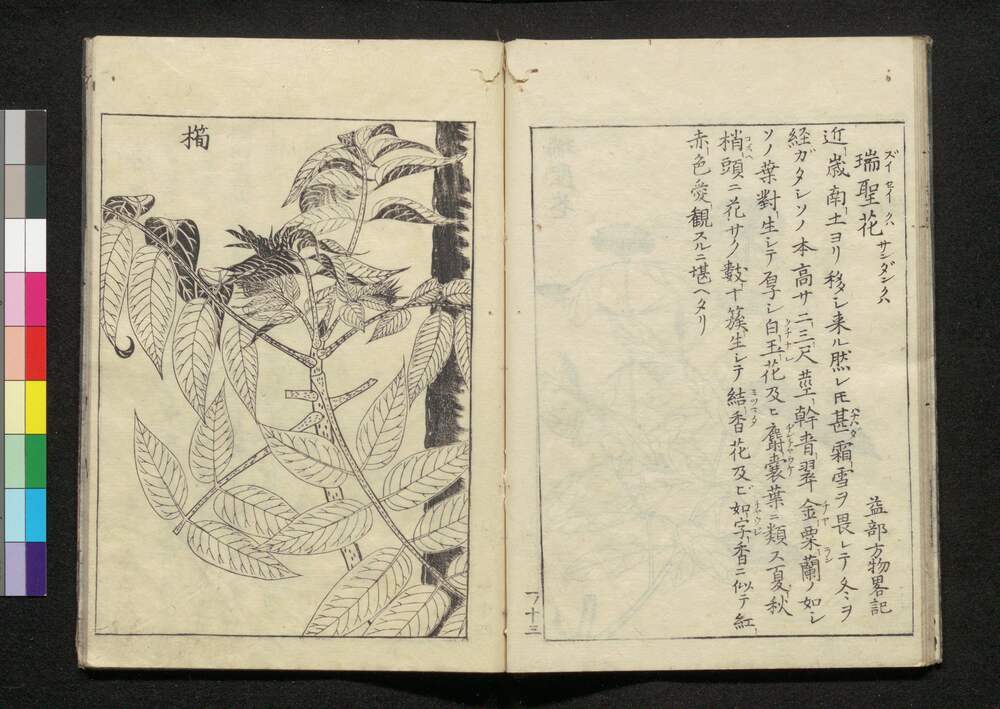 瑞聖花 ズイセイクハ サンダンクハ
益部方物畧記
近歳南土ヨリ移シ来ル然レ𪜈甚霜雪ヲ畏レテ冬ヲ
経ガタシソノ本高サ二三尺莖幹青翠金粟蘭ノ如シ
ソノ葉對生シテ厚シ白玉花及ヒ麝囊葉ニ類ス夏秋
梢頭ニ花サク数十簇生シテ結香花及ビ如字香ニ似テ紅
赤色愛観スルニ堪ヘタリ
一ノ十三